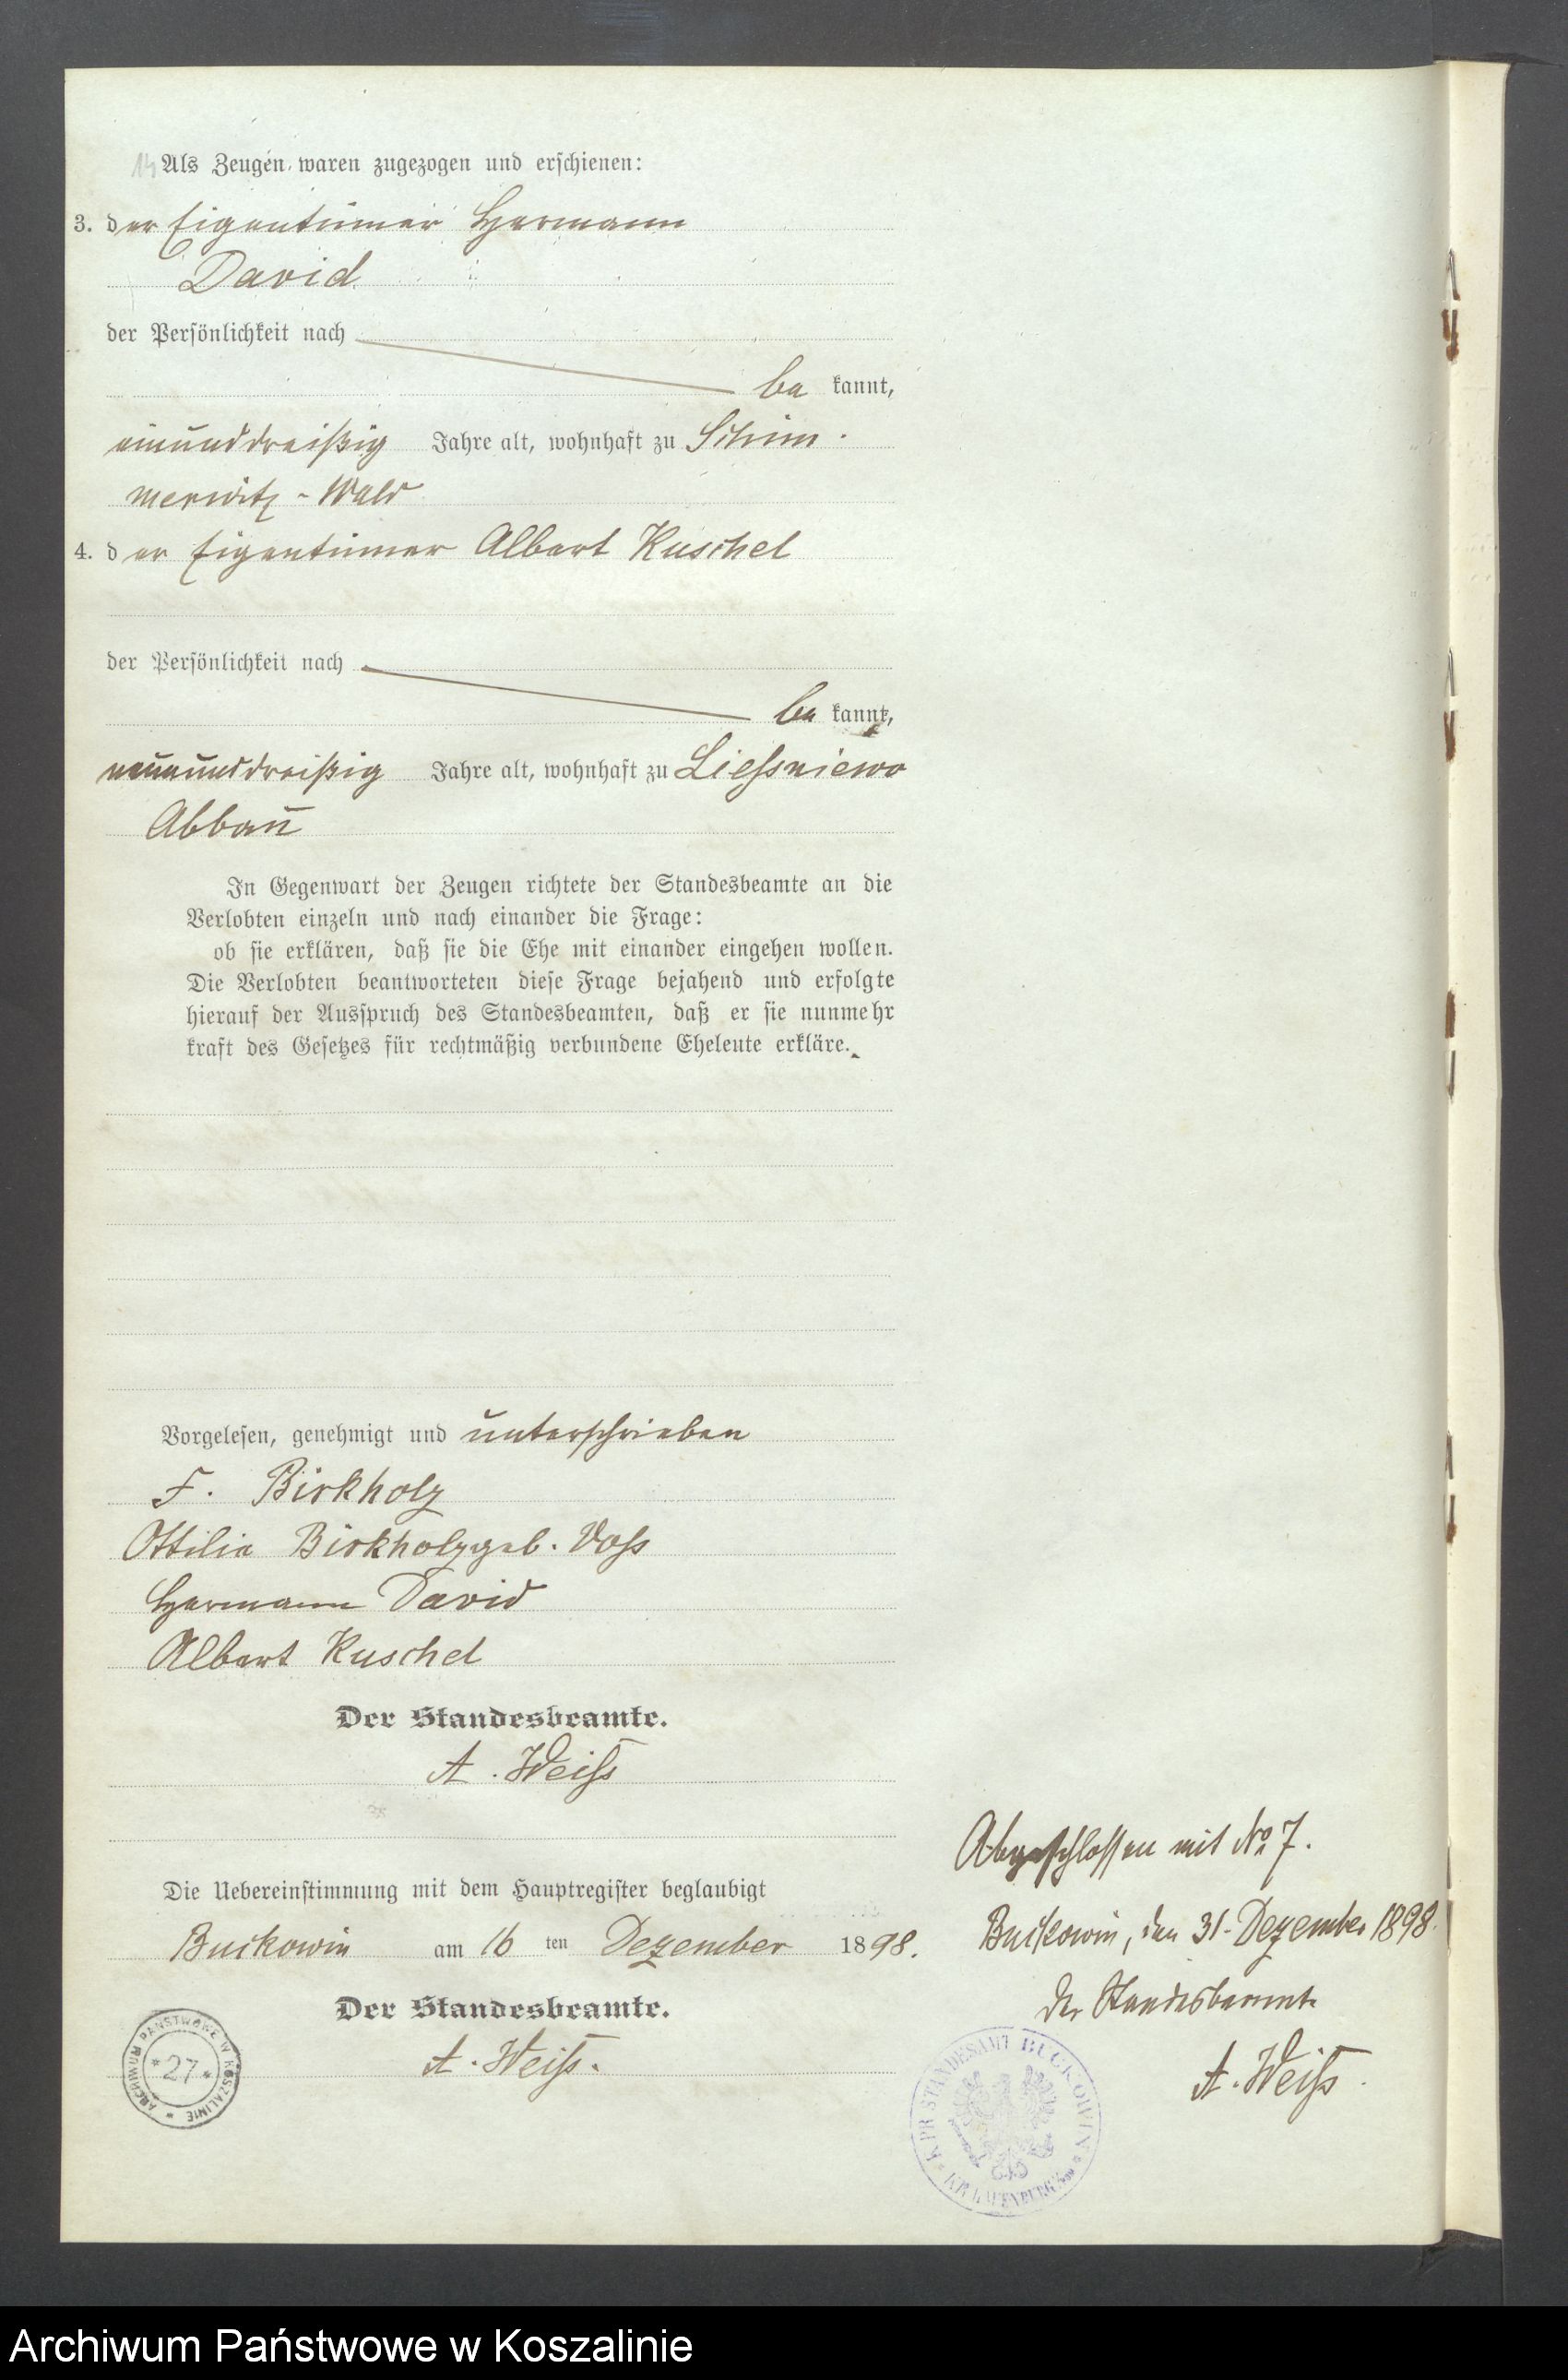 Als Zeugen waren zugezogen und erschienen:
3. der Eigentümer Hermann
David
der Persönlichkeit nach
be kannt,
einunddreißig Jahre alt, wohnhaft zu Schim-
merwitz-Wald
4. der Eigentümer Albert Kuschel
der Persönlichkeit nach
be kannt,
neununddreißig Jahre alt, wohnhaft zu Liessniewo
Abbau
In Gegenwart der Zeugen richtete der Standesbeamte an die
Verlobten einzeln und nach einander die Frage:
ob sie erklären, daß sie die Ehe mit einander eingehen wollen.
Die Verlobten beantworteten diese Frage bejahend und erfolgte
hierauf der Ausspruch des Standesbeamten, daß er sie nunmehr
kraft des Gesetzes für rechtmäßig verbundene Eheleute erkläre.
Vorgelesen, genehmigt und unterschrieben
F. Birkholz
Ottilie Birkholz geb. Voss
Hermann David
Albert Kuschel
Der Standesbeamte.
A. Weiss
Die Uebereinstimmung mit dem Hauptregister beglaubigt
Buckowin am 16 ten Dezember 1898.
Der Standesbeamte.
A. Weiss.
Abgeschlossen mit No 7.
Buckowin, den 31. Dezember 1898.
Der Standesbeamte
A. Weiss.
ARCHIWUM PAŃSTWOWE W KOSZALINIE
* 27 *
K. PR. STANDESAMT BUCKOWIN
KR. LAUENBURG
Archiwum Państwowe w Koszalinie